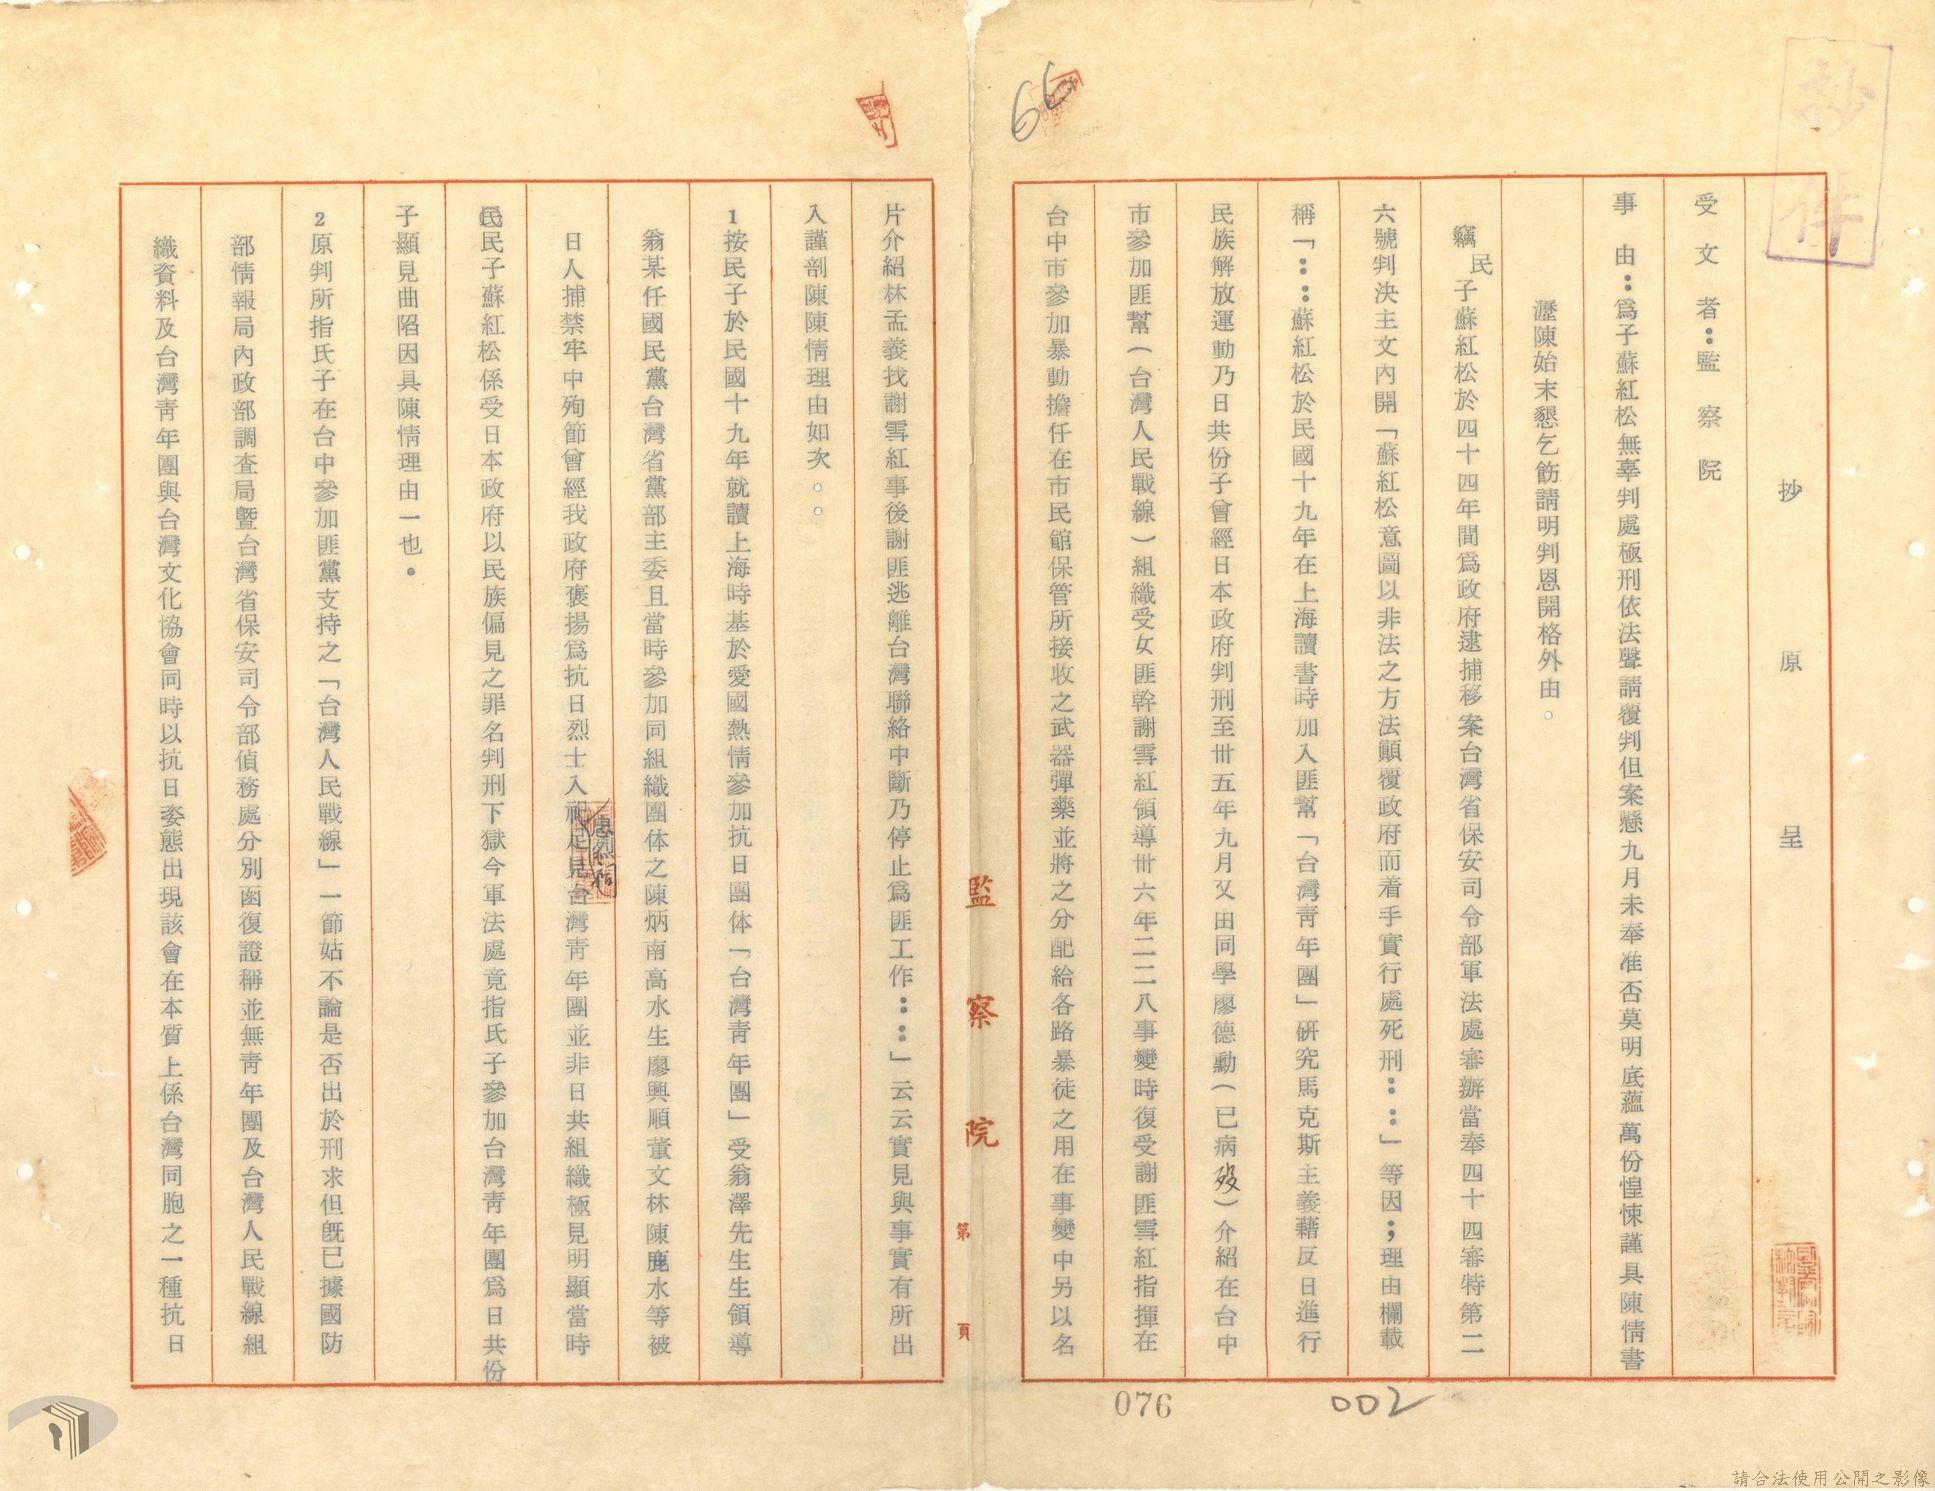 抄件
66
抄原呈
受文者：監察院
事由：為子蘇紅松無辜判處極刑依法聲請覆判但案懸九月未奉准否莫明底蘊萬份惶悚謹具陳情書
瀝陳始末懇乞飭請明判恩開格外由。
竊民子蘇紅松於四十四年間為政府逮捕移案台灣省保安司令部軍法處審辦當奉四十四審特第二
六號判決主文內開「蘇紅松意圖以非法之方法顛覆政府而着手實行處死刑……」等因；理由欄載
稱「……蘇紅松於民國十九年在上海讀書時加入匪幫「台灣青年團」研究馬克斯主義藉反日進行
民族解放運動乃日共份子曾經日本政府判刑至卅五年九月又由同學廖德勳(已病歿)介紹在台中
市參加匪幫(台灣人民戰線)組織受女匪幹謝雪紅領導卅六年二二八事變時復受謝匪雪紅指揮在
台中市參加暴動擔任在市民館保管所接收之武器彈藥並將之分配給各路暴徒之用在事變中另以名
片介紹林孟義找謝雪紅事後謝匪逃離台灣聯絡中斷乃停止為匪工作……」云云實見與事實有所出
入謹剖陳陳情理由如次。。
1按民子於民國十九年就讀上海時基於愛國熱情參加抗日團体「台灣青年團」受翁澤先生生領導
翁某任國民黨台灣省黨部主委且當時參加同組織團体之陳炳南高水生廖興順董文林陳鹿水等被
日人捕禁牢中殉節曾經我政府褒揚為抗日烈士入祀忠烈祠足見台灣青年團並非日共組織極見明顯當時
民民子蘇紅松係受日本政府以民族偏見之罪名判刑下獄今軍法處竟指氏子參加台灣青年團為日共份
子顯見曲陷因具陳情理由一也。
2原判所指氏子在台中參加匪黨支持之「台灣人民戰線」一節姑不論是否出於刑求但既已據國防
部情報局內政部調查局暨台灣省保安司令部偵務處分別函復證稱並無青年團及台灣人民戰線組
織資料及台灣青年團與台灣文化協會同時以抗日姿態出現該會在本質上係台灣同胞之一種抗日
監察院
第 頁
076
002
請合法使用公開之影像